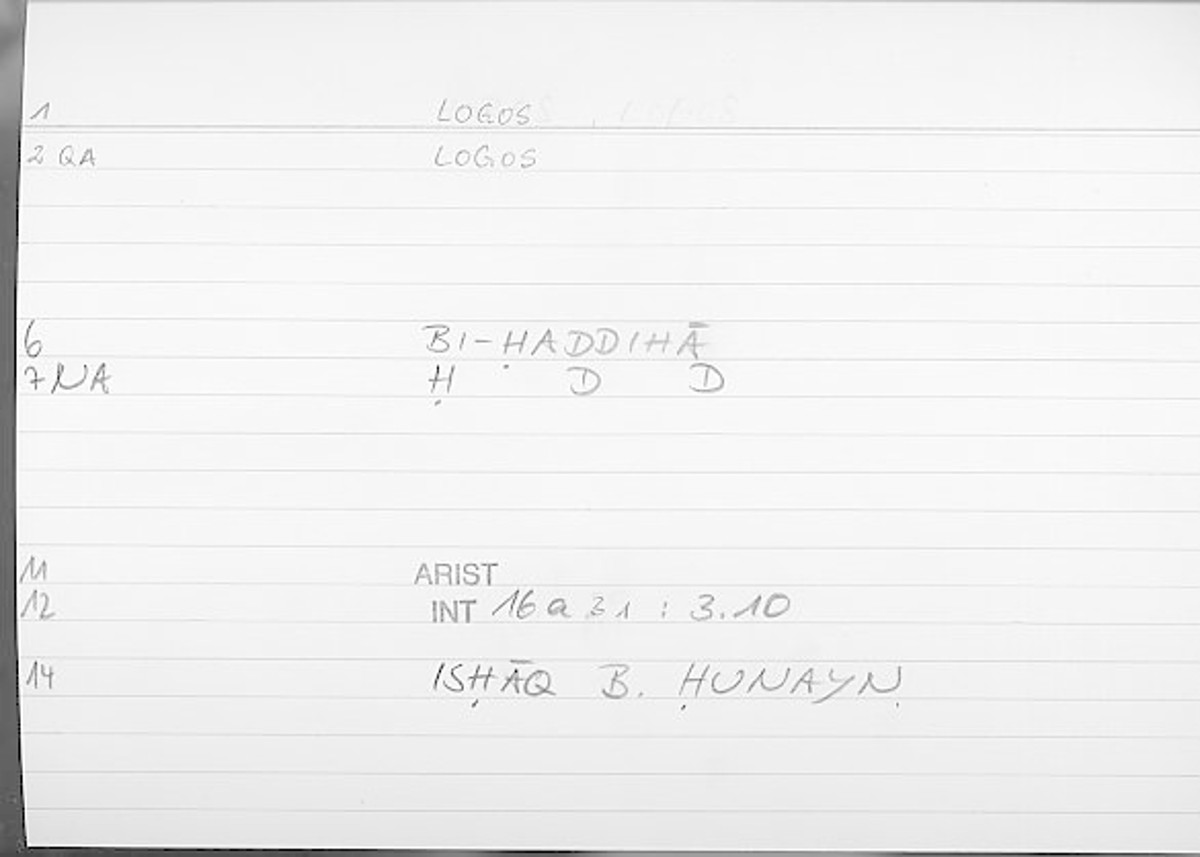 1 LOGOS
2 QA LOGOS
6 BI-ḤADDIHĀ
7 NA Ḥ D D
11 ARIST
12 INT 16a31 : 3.10
14 ISḤĀQ B. ḤUNAYN